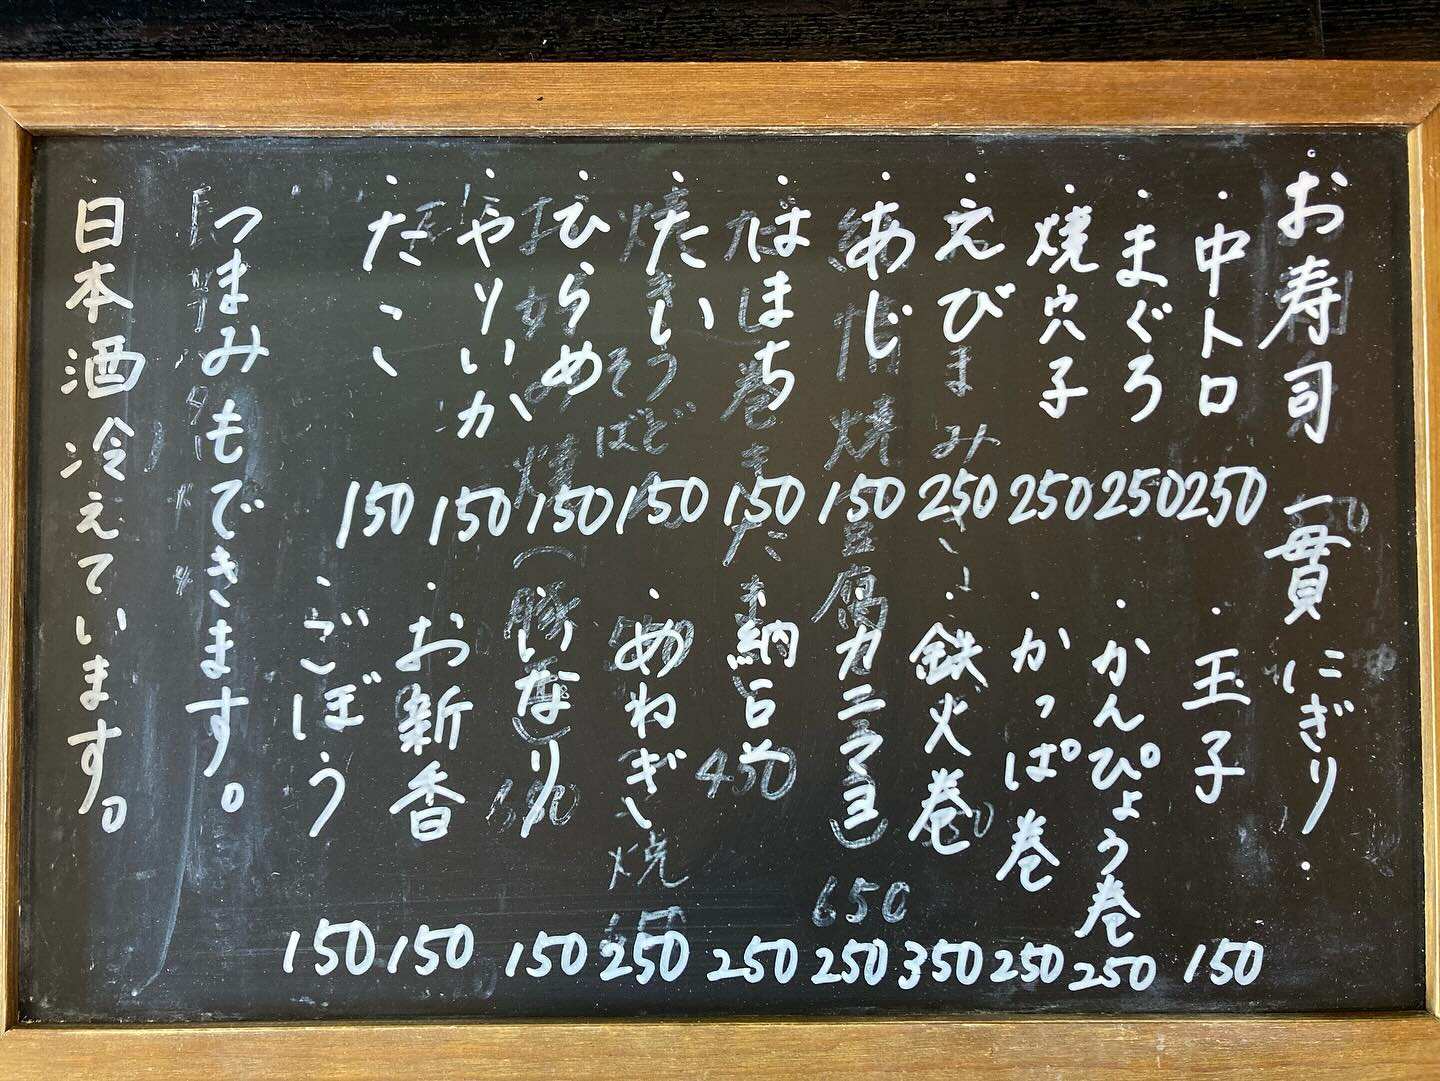 ・お寿司 一貫 にぎり・
・中トロ 250
・まぐろ 250
・焼穴子 250
・えび 250
・あじ 150
・はまち 150
・たい 150
・ひらめ 150
・やりいか 150
・たこ 150
・玉子 150
・かんぴょう巻 250
・かっぱ巻 250
・鉄火巻 350
・カニマヨ 250
・納豆 250
・めねぎ 250
・いなり 150
・お新香 150
・ごぼう 150
つまみもできます。
日本酒冷えています。